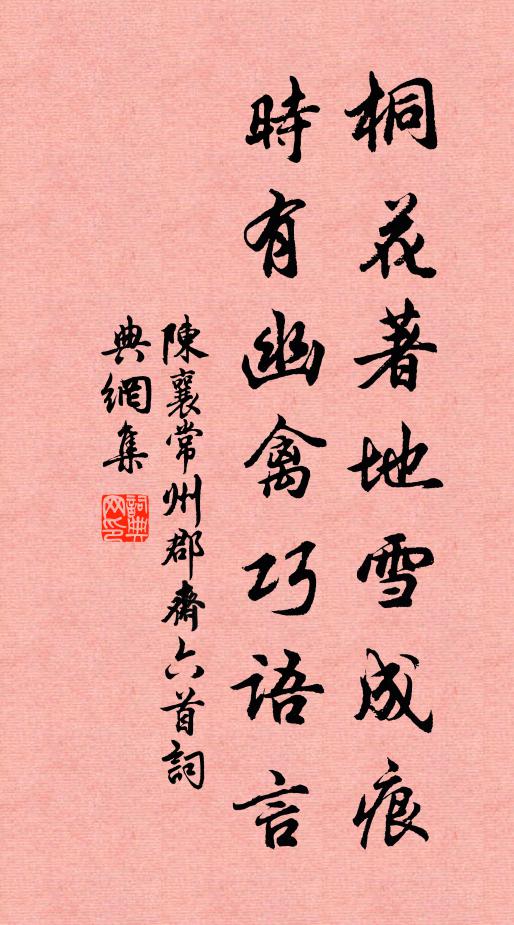 桐花著地雪成痕
時有幽禽巧語言
陳襄常州郡齋六首詞
典網集
詞典
网印